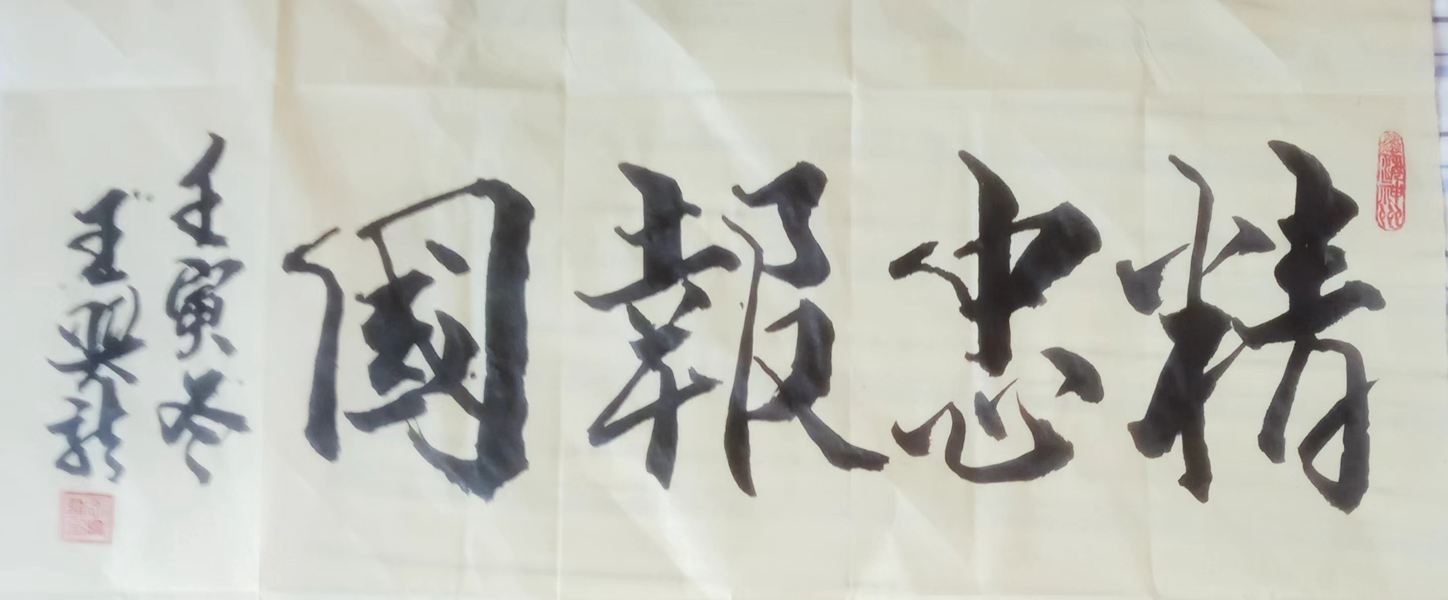 精忠報國
壬寅冬
王興龍